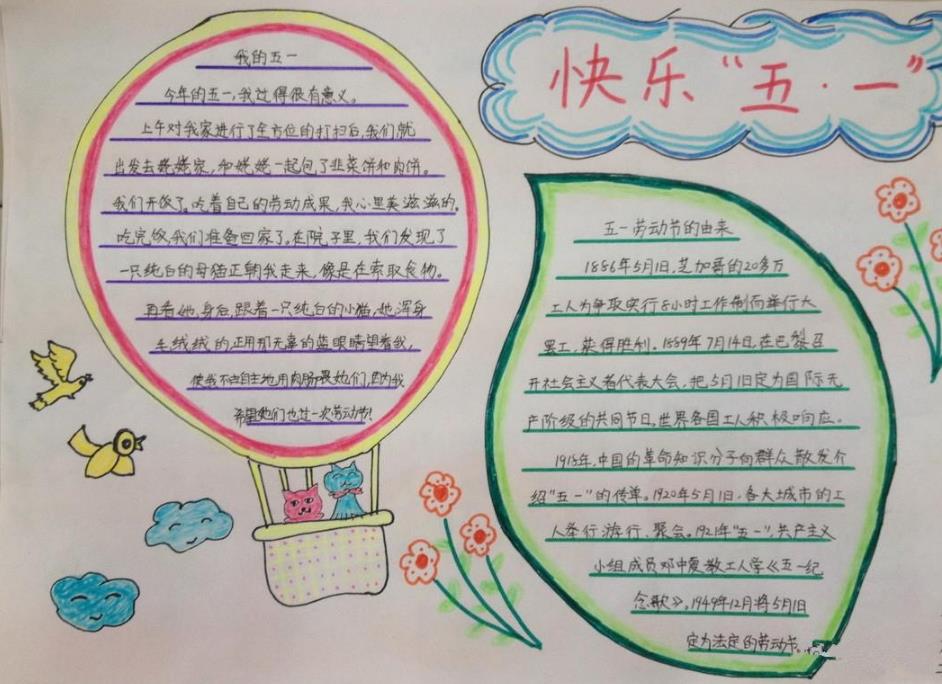 快乐"五·一"
我的五一
今年的五一,我过得很有意义。
上午对我家进行了全方位的打扫后,我们就
出发去姥姥家,和姥姥一起包了韭菜饼和肉饼。
我们开饭了。吃着自己的劳动成果,我心里美滋滋的。
吃完饭,我们准备回家了。在院子里,我们发现了
一只纯白的母猫正朝我走来,像是在索取食物。
再看她,身后跟着一只纯白的小猫,她浑身
毛绒绒的正用那无辜的蓝眼睛望着我,
使我不由自主地用肉肠喂她们,因为我
希望她们也过一次劳动节!
五一劳动节的由来
1886年5月1日,芝加哥的20多万
工人为争取实行8小时工作制而举行大
罢工,获得胜利。1889年7月14日,在巴黎召
开社会主义者代表大会,把5月1日定为国际无
产阶级的共同节日。世界各国工人积极响应。
1915年,中国的革命知识分子向群众散发介
绍"五一"的传单。1920年5月1日,各大城市的工
人举行游行、聚会。1921年"五一",共产主义
小组成员邓中夏教工人学《五一纪
念歌》。1949年12月将5月1日
定为法定的劳动节。